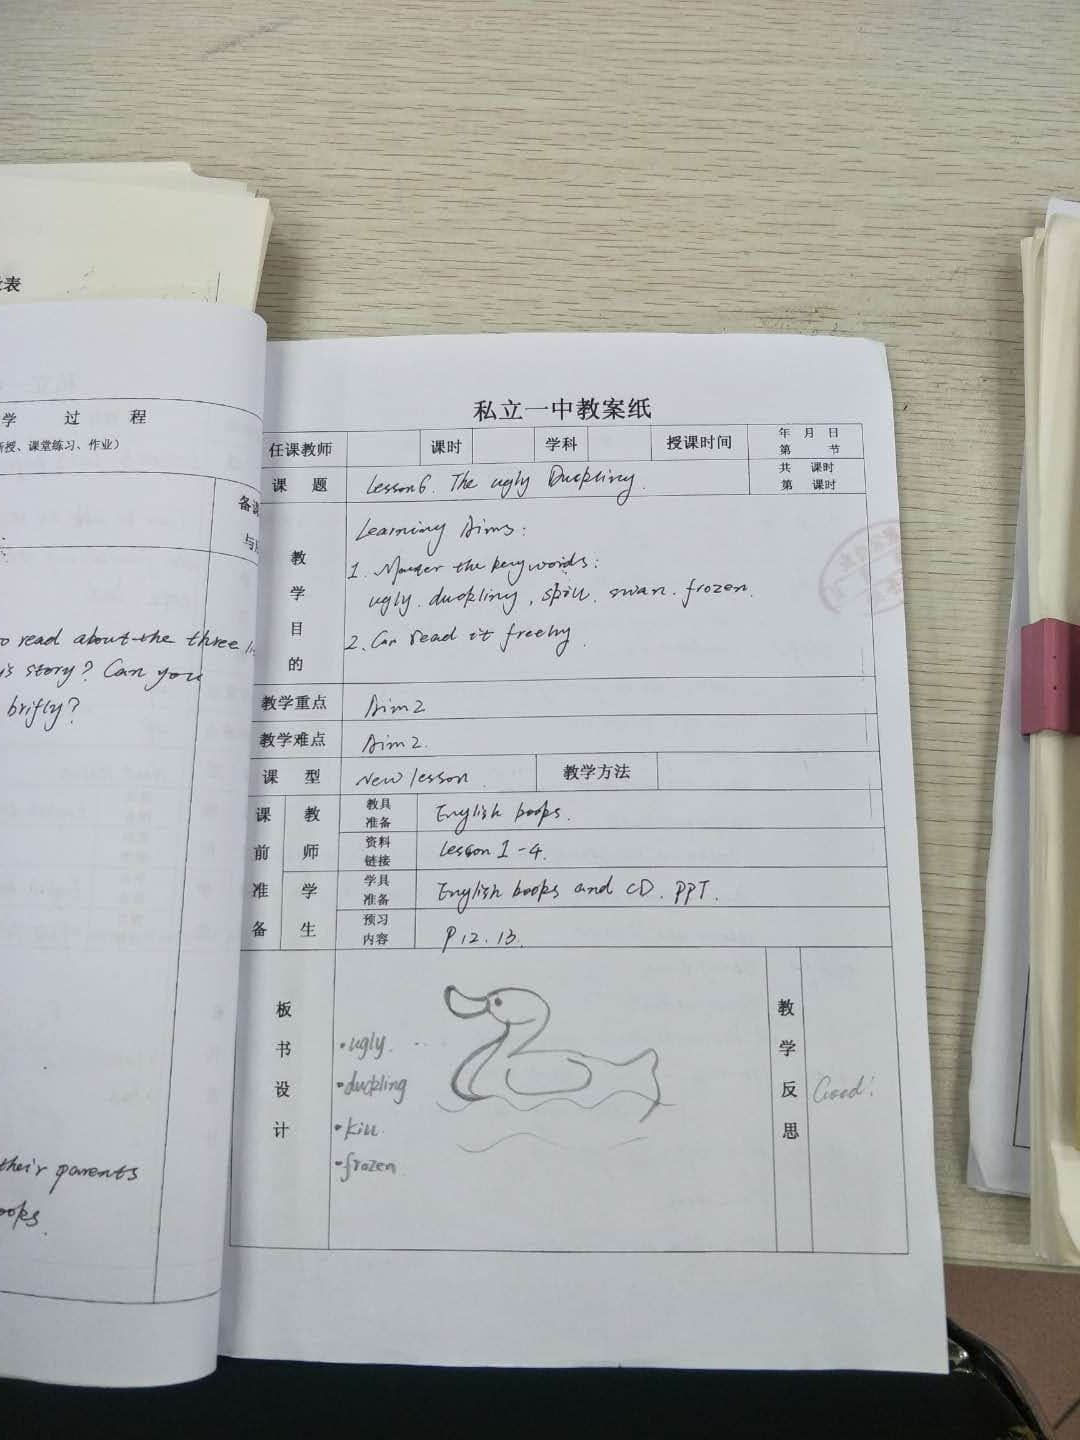 表
学 过 程
授、课堂练习、作业）
备
与
o read about the three
's story? Can you
brifly?
their parents
ooks.
私立一中教案纸
任课教师 课时 学科 授课时间 年 月 日
第 节
课 题 Lesson 6. The ugly Duckling. 共 课时
第 课时
教学目的
Learning Aims:
1. Master the key words:
ugly. duckling, swan. frozen.
2. Can read it freely.
教学重点 Aim 2
教学难点 Aim 2.
课 型 New lesson 教学方法
课前准备
教师
教具准备 English books.
资料链接 Lesson 1-4.
学生
学具准备 English books and CD. PPT.
预习内容 P12. 13.
板书设计
•ugly.
•duckling
•kill
•frozen
教学反思
Good!